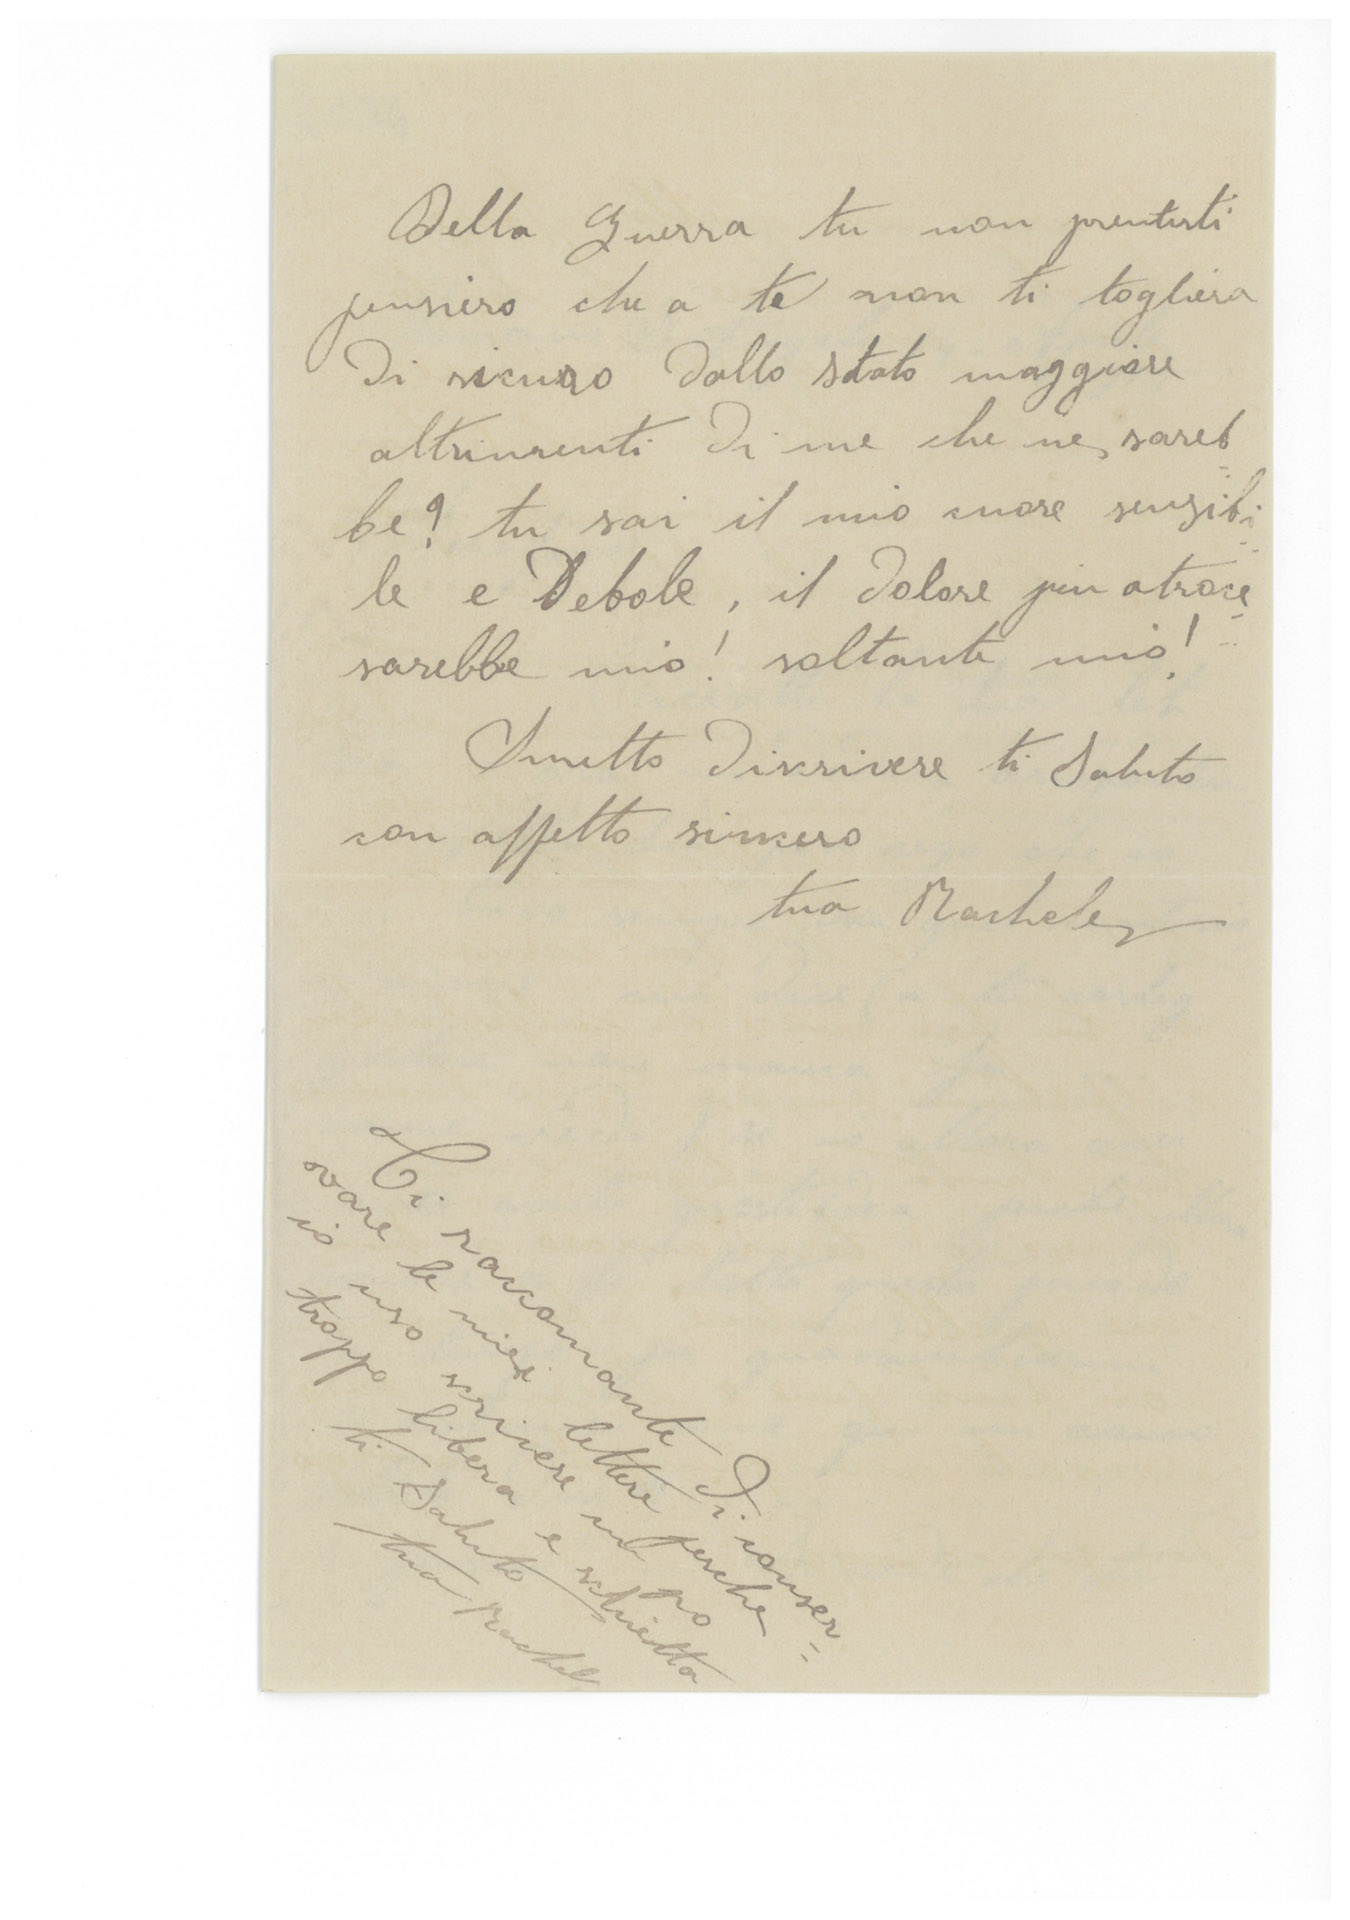 Della Guerra tu non prenderti
pensiero che a te non ti togliera
di sicuro dallo stato maggiore
altrimenti di me che ne sareb
be? tu sai il mio cuore sensibi
le e Debole, il dolore piu atroce
sarebbe mio! soltanto mio!
Smetto discrivere ti Saluto
con affetto sincero
tua Rachele
Ti raccomante di conser=
vare le mie lettere perche
io uso scrivere un po
troppo libera e schietta
ti Saluto
tua Rachel